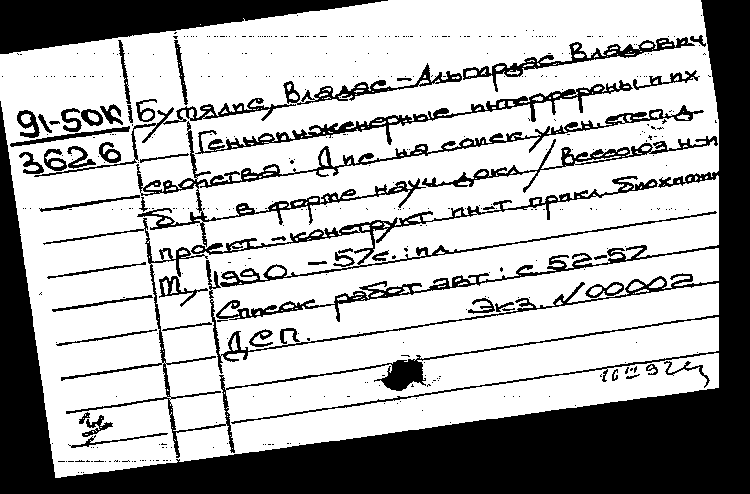 91-50К
362.6
Бутялис, Владас-Альгирдас Владович
Генноинженерные интерфероны и их
свойства: Дис. на соиск. учен. степ. д-
б. н. в форме науч. докл. / Всесоюз н-и
проект.-конструкт. ин-т прикл. биохими
М., 1990. - 57с. : ил.
Список работ авт.: с 52-57
ДСП. Экз. N 00002